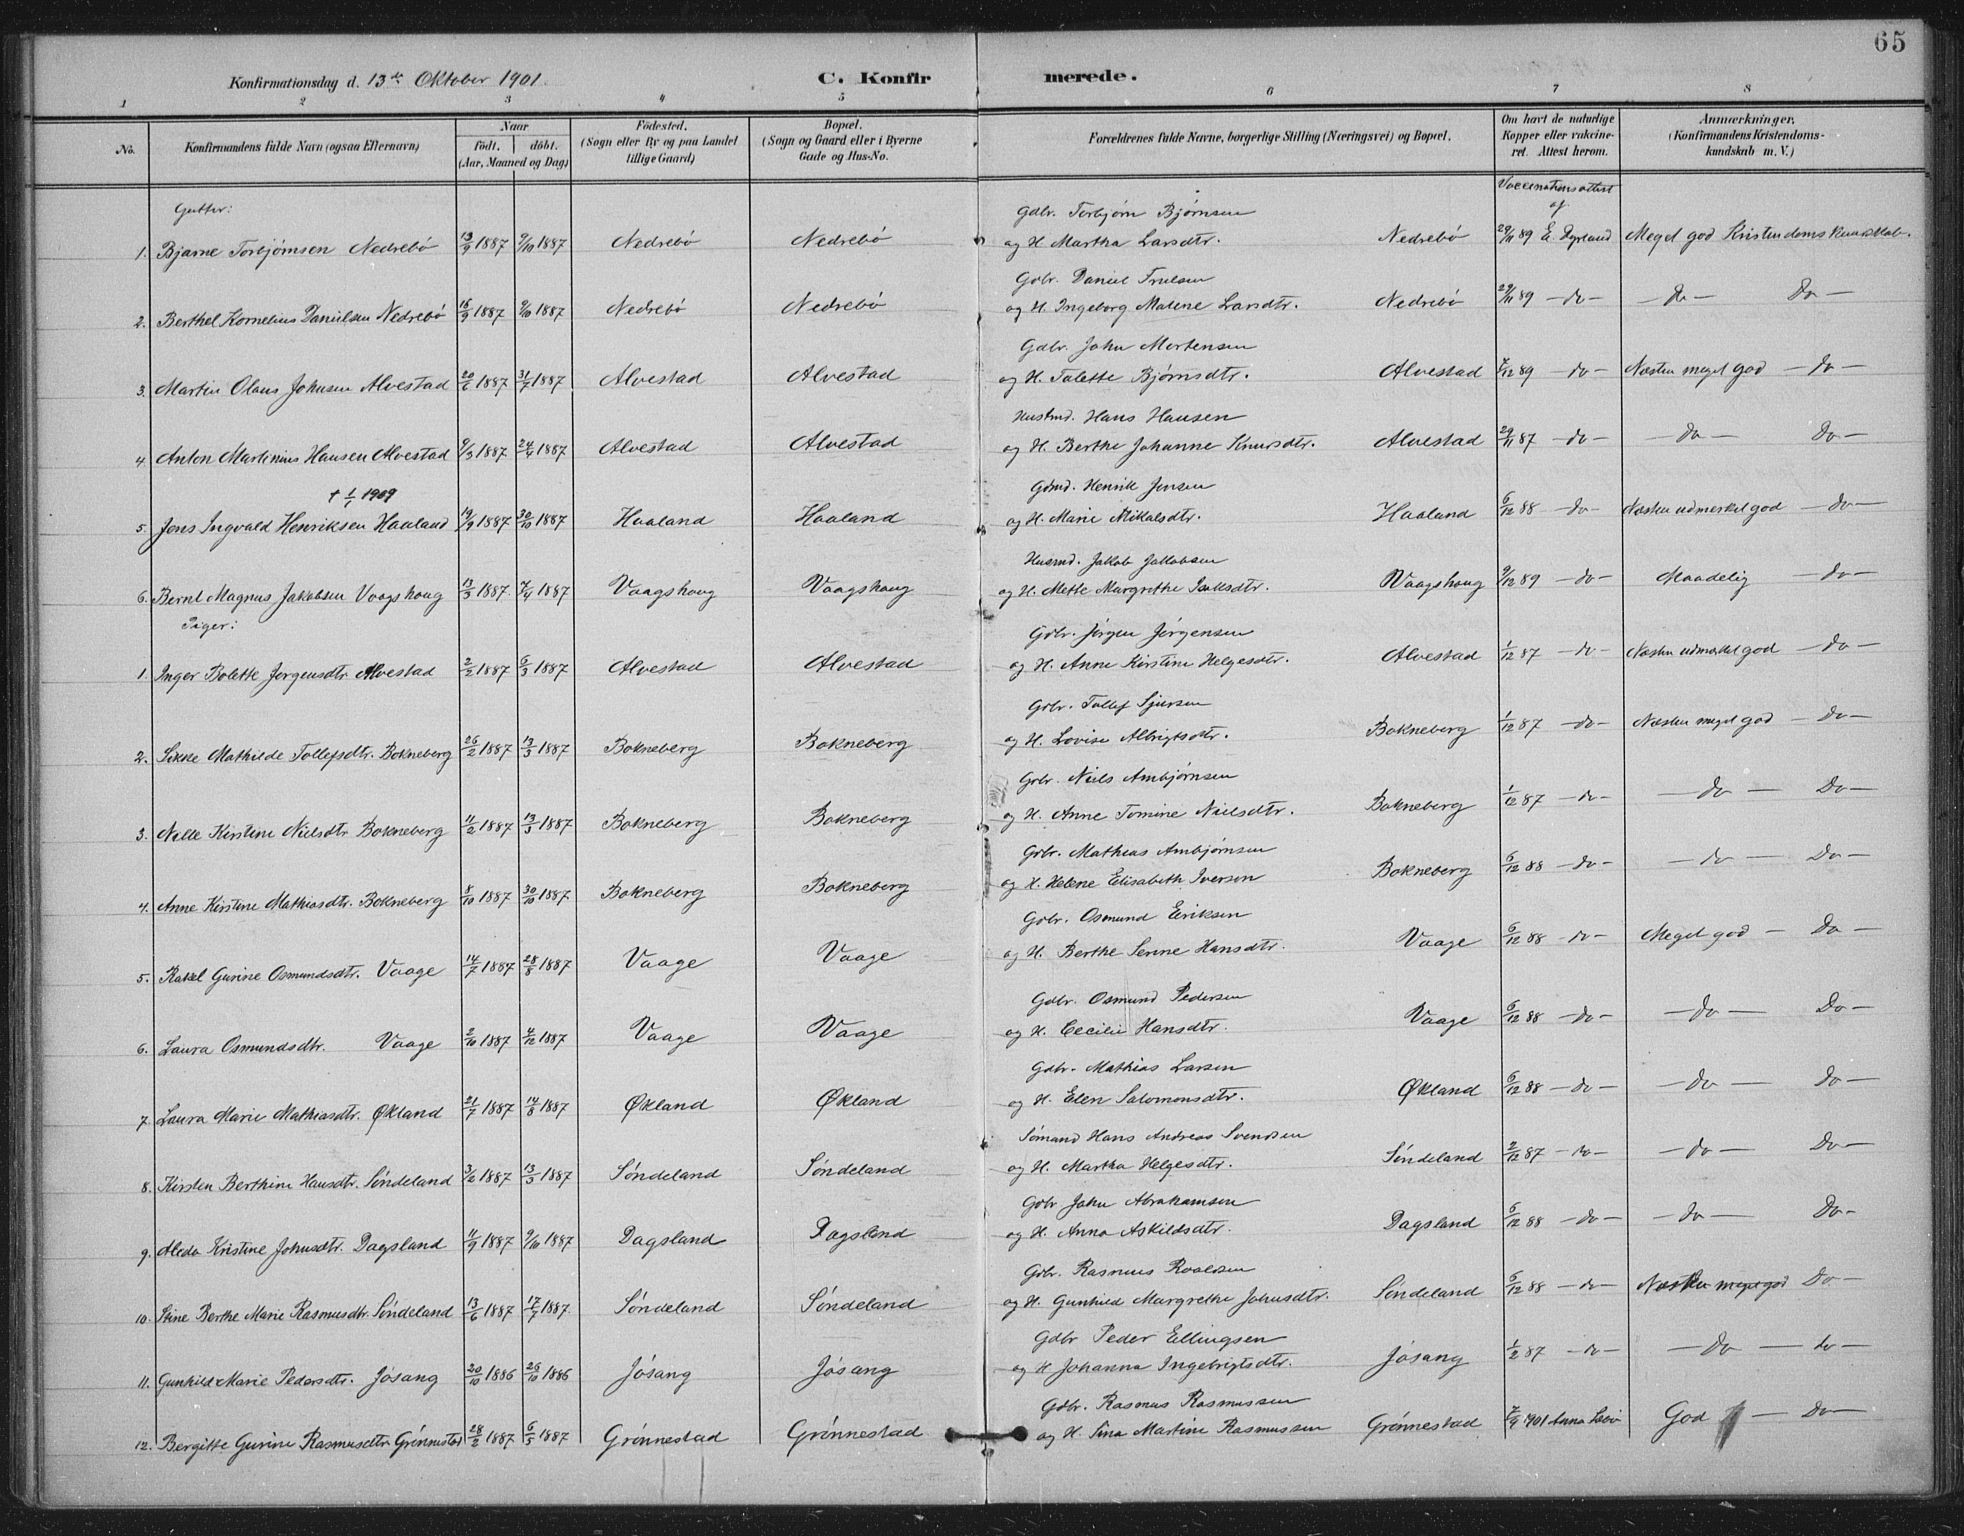 65
Konfirmationsdag d. 13de Oktober 1901.
C. Konfirmerede.
1 2 3 4 5 6 7 8
No.
Konfirmandens fulde Navn (ogsaa Efternavn)
Naar
födt. döbt.
(Aar, Maaned og Dag)
Födested.
(Sogn eller By og paa Landet
tillige Gaard)
Bopæl.
(Sogn og Gaard eller i Byerne
Gade og Hus-No.
Forældrenes fulde Navne, borgerlige Stilling (Næringsvei) og Bopæl.
Om havt de naturlige
Kopper eller vakcine-
ret. Attest herom.
Anmærkninger.
(Konfirmandens Kristendoms-
kundskab m. V.)
Gutter:
Vaccinationsattest
af
Gdbr. Torbjørn Bjørnsen
1. Bjarne Torbjørnsen Nedrebø 13/9 1887 9/10 1887 Nedrebø Nedrebø og H. Martha Larsdtr. Nedrebø 29/11 89 E. Dyrland Meget god Kristendomskundskab.
Gdbr. Daniel Trulsen
2. Berthel Kornelius Danielsen Nedrebø 16/9 1887 9/10 1887 Nedrebø Nedrebø og H. Ingeborg Malene Larsdtr. Nedrebø 29/11 89 — do — — Do — Do —
Gdbr. John Mortensen
3. Martin Olaus Johnsen Alvestad 20/6 1887 31/7 1887 Alvestad Alvestad og H. Tolette Bjørnsdtr. Alvestad 7/12 89 — do — Næsten meget god — Do —
Hustmd. Hans Hansen
4. Anton Martinius Hansen Alvestad 9/3 1887 24/4 1887 Alvestad Alvestad og H. Berthe Johanne Knutsdtr. Alvestad 29/11 87 — do — — Do — Do —
† 1/1 1909
Gdmd. Henrik Jensen
5. Jens Ingvald Henriksen Haaland 19/9 1887 30/10 1887 Haaland Haaland og H. Marie Mikalsdtr. Haaland 6/12 88 — do — Næsten udmerket god — Do —
Husmd. Jakob Jakobsen
6. Bernt Magnus Jakobsen Vaagshaug 13/3 1887 7/4 1887 Vaagshaug Vaagshaug og H. Mette Margrethe Isaksdtr. Vaagshaug 9/12 89 — do — Maadelig — Do —
Piger:
Gdbr. Jørgen Jørgensen
1. Inger Bolette Jørgensdtr. Alvestad 2/2 1887 6/3 1887 Alvestad Alvestad og H. Anne Kirstine Helgesdtr. Alvestad 1/12 87 — do — Næsten udmerket god — Do —
Gdbr. Tollef Sjursen
2. Sikke Mathilde Tollefsdtr. Bokneberg 26/2 1887 13/3 1887 Bokneberg Bokneberg og H. Lovise Albrigtsdtr. Bokneberg 1/12 87 — do — Næsten meget god — Do —
Gdbr. Niels Ambjørnsen
3. Nelle Kirstine Nielsdtr. Bokneberg 11/2 1887 13/3 1887 Bokneberg Bokneberg og H. Anne Tomine Nielsdtr. Bokneberg 1/12 87 — do — — Do — Do —
Gdbr. Mathias Ambjørnsen
4. Anne Kirstine Mathiasdtr. Bokneberg 8/10 1887 30/10 1887 Bokneberg Bokneberg og H. Helene Elisabeth Iversen Bokneberg 6/12 88 — do — — Do — Do —
Gdbr. Osmund Eriksen
5. Rakel Gurine Osmundsdtr. Vaage 14/7 1887 28/8 1887 Vaage Vaage og H. Berthe Serine Hansdtr. Vaage 6/12 88 — do — Meget god — Do —
Gdbr. Osmund Pedersen
6. Laura Osmundsdtr. Vaage 2/10 1887 4/12 1887 Vaage Vaage og H. Cecilie Hansdtr. Vaage 6/12 88 — do — — Do — Do —
Gdbr. Mathias Larsen
7. Laura Marie Mathiasdtr. Økland 21/7 1887 14/8 1887 Økland Økland og H. Elen Salomonsdtr. Økland 6/12 88 — do — — Do — Do —
Sømand Hans Andreas Svendsen
8. Kirsten Berthine Hansdtr. Søndeland 3/2 1887 13/3 1887 Søndeland Søndeland og H. Martha Helgesdtr. Søndeland 2/12 87 — do — — do — Do —
Gdbr John Abrahamsen
9. Aleda Kristine Johnsdtr. Dagsland 11/9 1887 9/10 1887 Dagsland Dagsland og H. Anna Askildsdtr. Dagsland 6/12 88 — do — — Do — Do —
Gdbr. Rasmus Roaldsen
10. Stine Berthe Marie Rasmusdtr. Søndeland 13/6 1887 17/7 1887 Søndeland Søndeland og H. Gunhild Margrethe Johnsdtr. Søndeland 6/12 88 — do — Næsten meget god Do —
Gdbr Peder Ellingsen
11. Gunhild Marie Pedersdtr. Jøsang 20/10 1886 26/10 1886 Jøsang Jøsang og H Johanna Ingebrigtsdtr. Jøsang 1/2 87 — do — — Do — do —
Gdbr. Rasmus Rasmussen
12. Bergitte Gurine Rasmusdtr Grønnestad 28/2 1887 6/5 1887 Grønnestad Grønnestad og H. Sina Martine Rasmussen Grønnestad 7/9 1901 Anna God — Do —